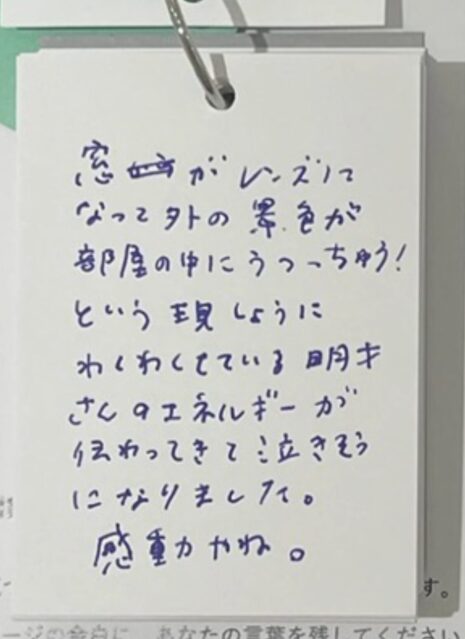 窓がレンズに
なって外の景色が
部屋の中にうつっちゃう!
という現しょうに
わくわくしている明才
さんのエネルギーが
伝わってきて泣きそう
になりました。
感動やね。
す。
ージの余白に、あなたの言葉を残してください